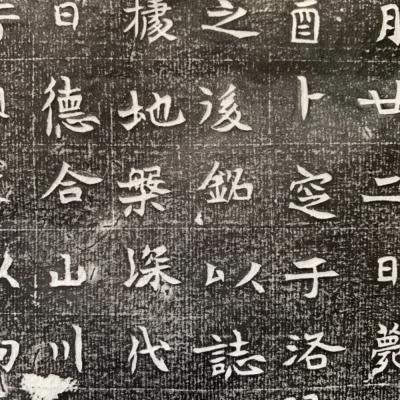 月廿二日薨
酉卜窆于洛
之後銘以誌
據地槃深代
日德合山川